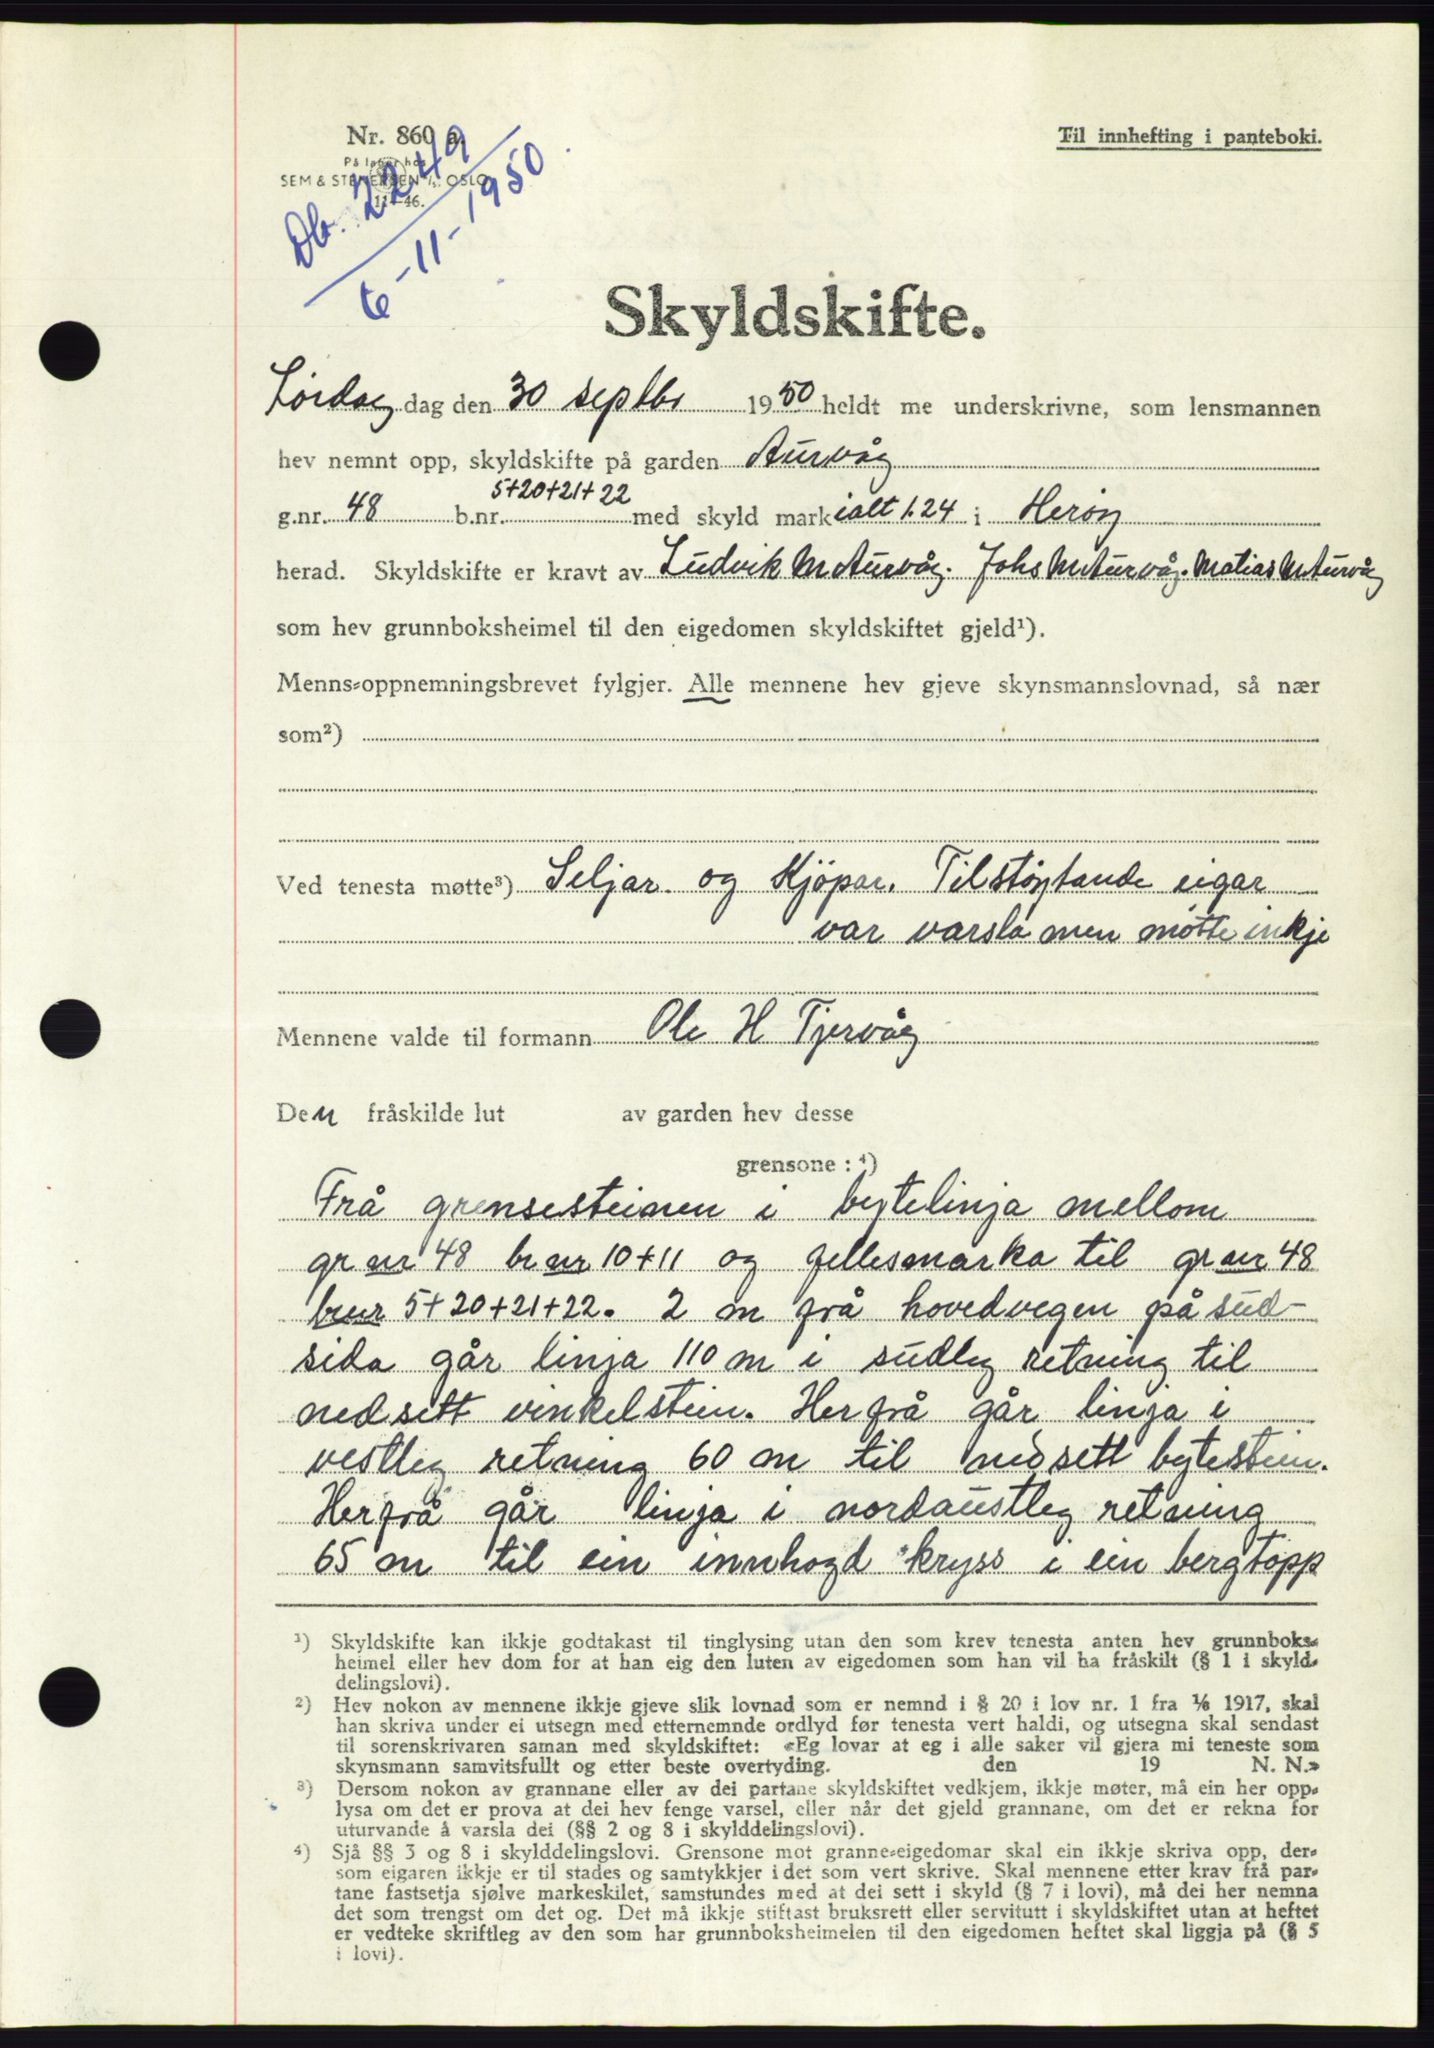 Nr. 860 a.
På lager hos
SEM & STENERSEN A/S OSLO
11-46.
Db. 2249
6-11-1950
Til innhefting i panteboki.
Skyldskifte.
Lördag dag den 30 septbr 1950 heldt me underskrivne, som lensmannen
hev nemnt opp, skyldskifte på garden Aurvåg
5+20+21+22
g.nr. 48 b.nr. med skyld mark ialt 1.24 i Heröy
herad. Skyldskifte er kravt av Ludvik M Aurvåg. Johs M Aurvåg. Matias M Aurvåg
som hev grunnboksheimel til den eigedomen skyldskiftet gjeld¹).
Menns-oppnemningsbrevet fylgjer. Alle mennene hev gjeve skynsmannslovnad, så nær
som²)
Ved tenesta møtte³) Seljar og Kjöpar. Tilstöytande eigar
var varsla men mötte inkje
Mennene valde til formann Ole H Tjervåg
Den fråskilde lut av garden hev desse
grensone : ⁴)
Frå grensesteinen i bytelinja mellom
gr nr 48 br nr 10+11 og fellesmarka til gr nr 48
br nr 5+20+21+22. 2 m frå hovedvegen på sud-
sida går linja 110 m i sudleg retning til
nedsett vinkelstein. Herfrå går linja i
vestleg retning 60 m til nedsett bytestein.
Herfrå går linja i nordaustleg retning
65 m til ein innhogd kryss i ein bergtopp
¹) Skyldskifte kan ikkje godtakast til tinglysing utan den som krev tenesta anten hev grunnboks-
heimel eller hev dom for at han eig den luten av eigedomen som han vil ha fråskilt (§ 1 i skyld-
delingslovi).
²) Hev nokon av mennene ikkje gjeve slik lovnad som er nemnd i § 20 i lov nr. 1 fra 1/6 1917, skal
han skriva under ei utsegn med etternemnde ordlyd før tenesta vert haldi, og utsegna skal sendast
til sorenskrivaren saman med skyldskiftet: «Eg lovar at eg i alle saker vil gjera mi teneste som
skynsmann samvitsfullt og etter beste overtyding. den 19 N. N.»
³) Dersom nokon av grannane eller av dei partane skyldskiftet vedkjem, ikkje møter, må ein her opp-
lysa om det er prova at dei hev fenge varsel, eller når det gjeld grannane, om det er rekna for
uturvande å varsla dei (§§ 2 og 8 i skylddelingslovi).
⁴) Sjå §§ 3 og 8 i skylddelingslovi. Grensone mot granne-eigedomar skal ein ikkje skriva opp, der-
som eigaren ikkje er til stades og samtykkjer i det som vert skrive. Skal mennene etter krav frå par-
tane fastsetja sjølve markeskilet, samstundes med at dei sett i skyld (§ 7 i lovi), må dei her nemna
det som trengst om det og. Det må ikkje stiftast bruksrett eller servitutt i skyldskiftet utan at heftet
er vedteke skriftleg av den som har grunnboksheimelen til den eigedomen heftet skal liggja på (§ 5
i lovi).